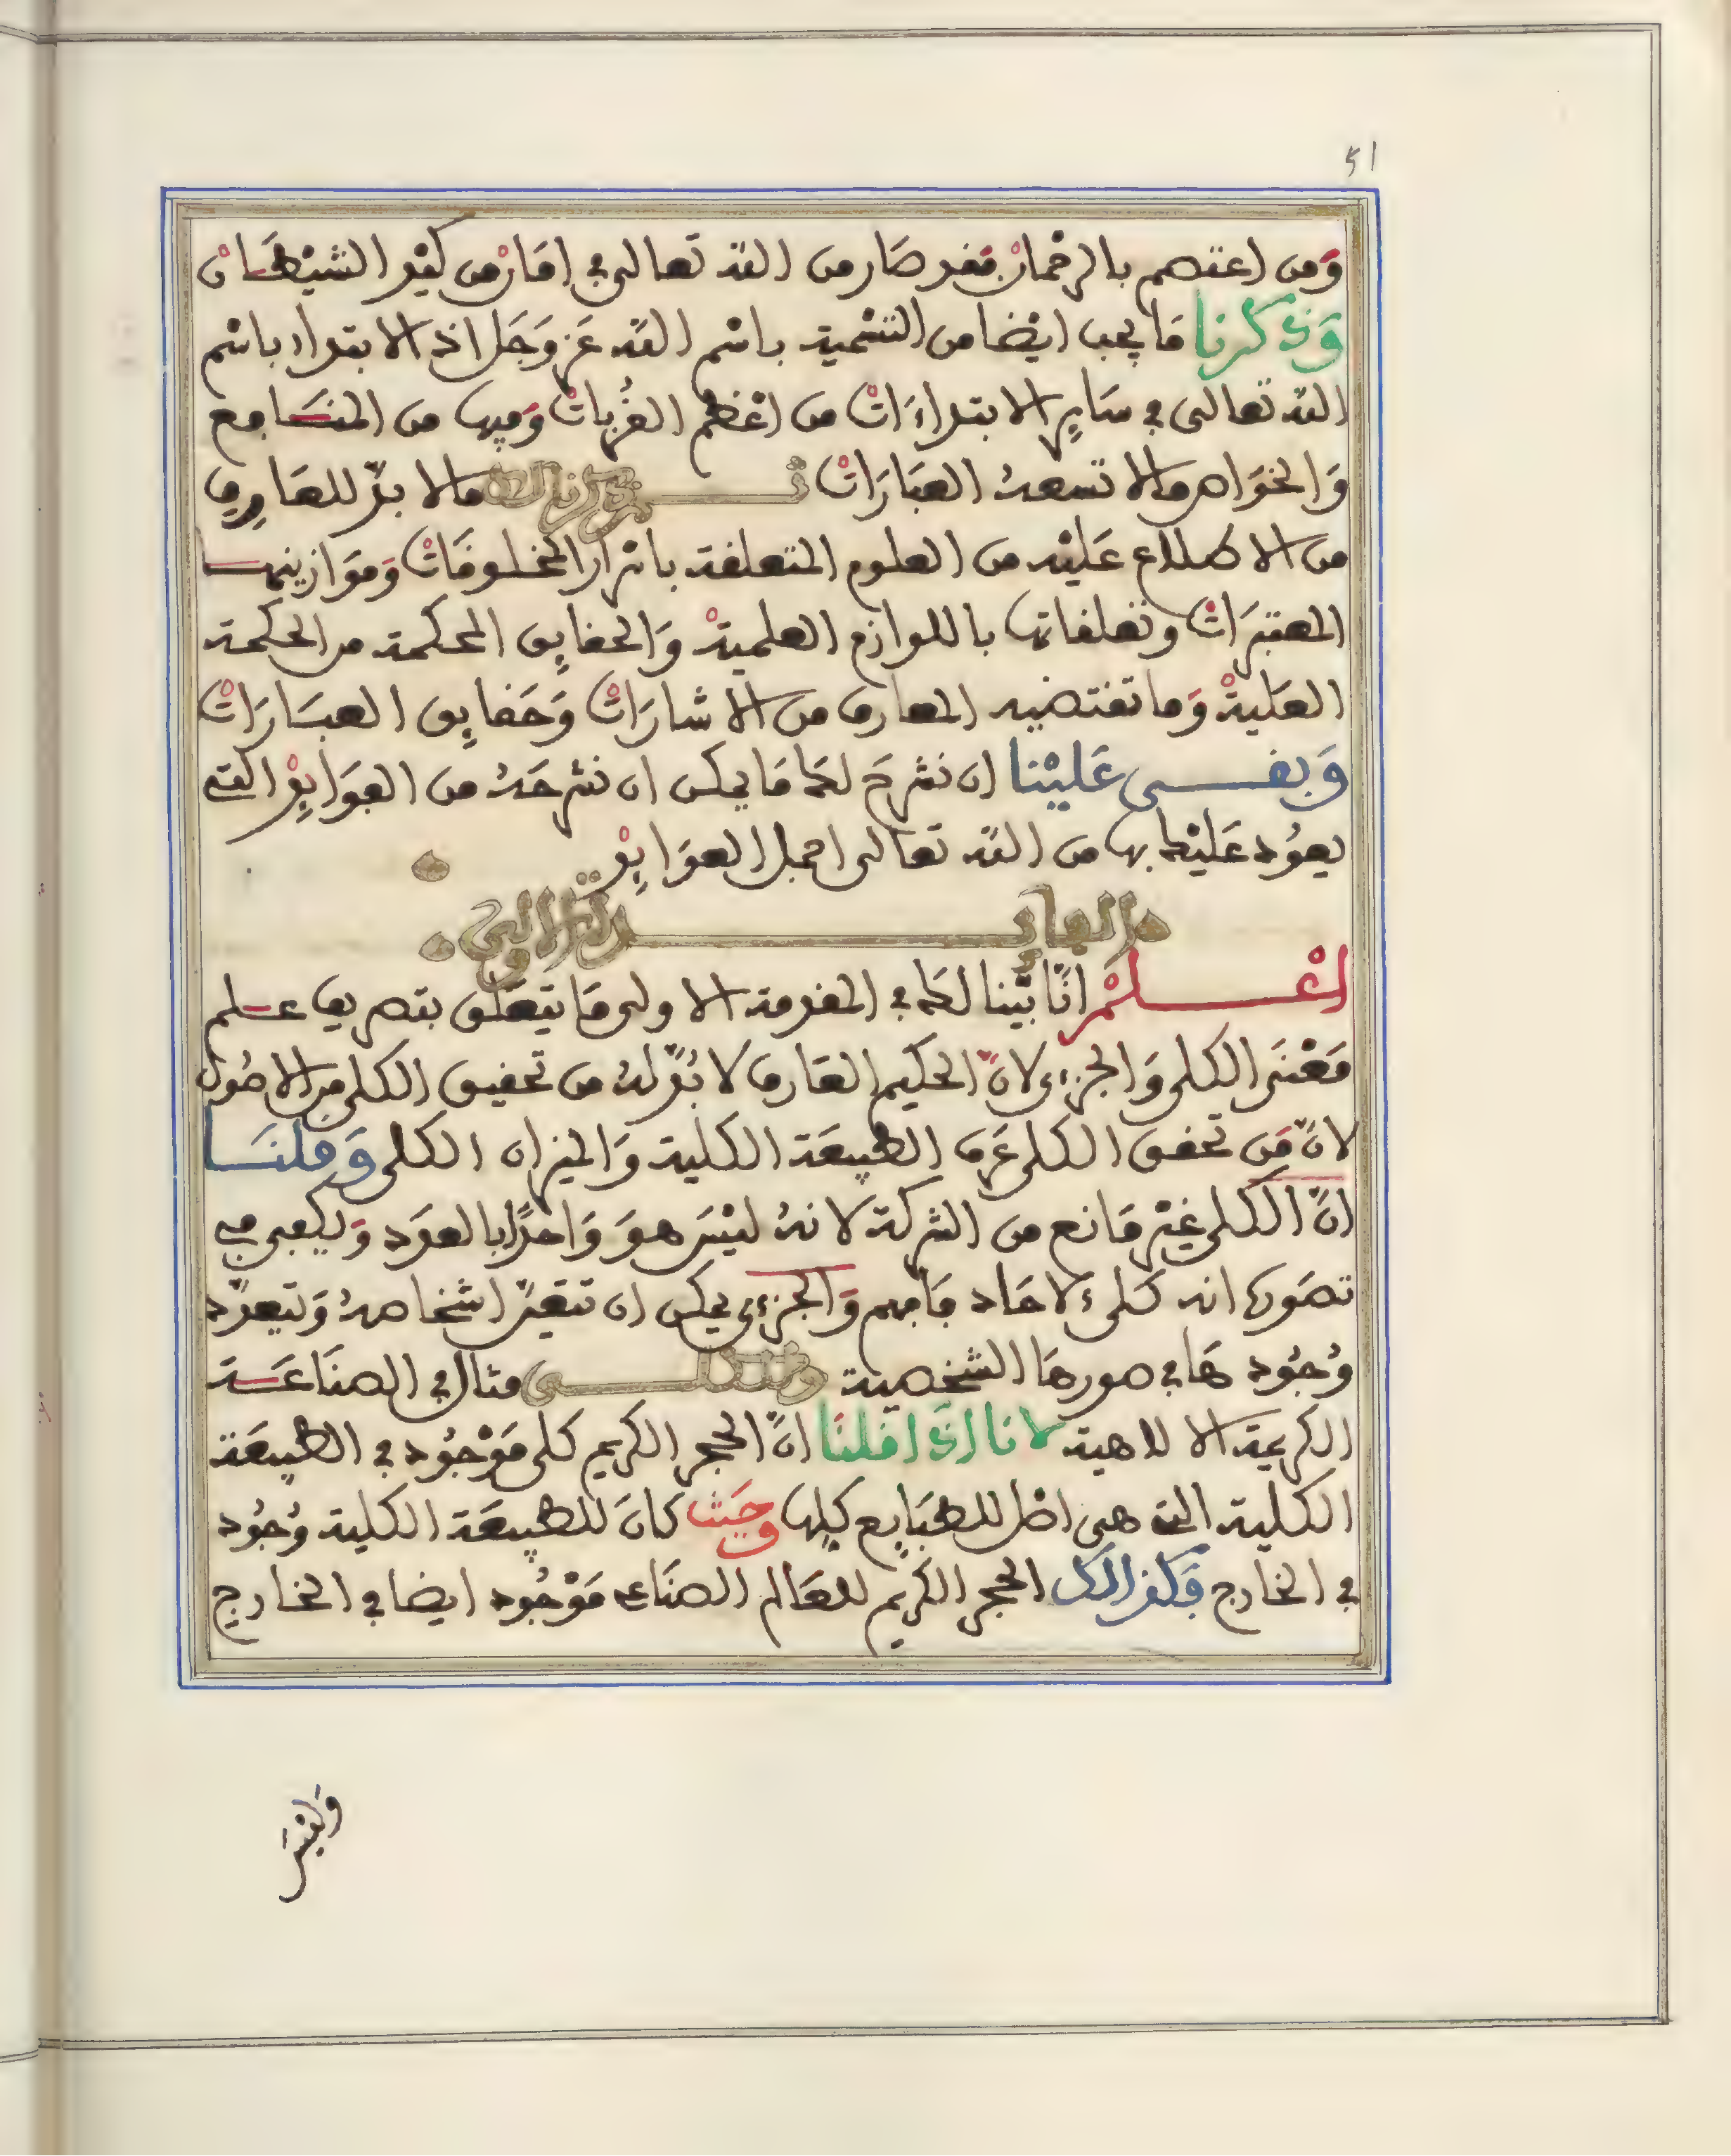 51
وَمن اعتصم بالرحْمانْ فقد صَار من الله تعالى في امَانْ من كيْد الشيْطَانْ
وَذكرنا مَا يجب ايْضا من التسْمية باسْم الله عَز وَجَل اذ الابتداء باسْم
الله تعالى في سَايِر الابتداءَاتْ من اعْظم القُرباتْ وَفيها من المنَافع
وَالخوَاص مالا تسعهُ العبَارَاتْ ثم ذكرنا لك مالا بدّ للعَارِف
من الاطلاع عَليْه من العلوم المتعلقة باسْرار المخلوقَاتْ وَموَازينها
المعتبرَاتْ وتعلقاتها باللوازم العلميةْ وَالحقايِق المحكمة من الحكمة
العَليةْ وَما تقتضيه المعارف من الاشارَاتْ وَحَقايِق العبَارَاتْ
وَبقى عَليْنا ان نشرحَ لكَ مَا يمكن ان نشرحَهُ من الفوَايِدْ التي
يعوُد عَليْك بها من الله تعالى اجمل العوَايِدْ
الفايدة الاولى
اعْلمْ انّا بيّنا لكَ في المقدمة الاولى مَا يتعَلق بتصريف علم
مَعْنَى الكلي وَالجزءي لانّ الحَكيم العَارف لا بُدّ لهُ من تحقيق الكلي من الاصُول
لانّ مَن تحقق الكلي عَرف الطبيعَة الكلية وَالميزان الكلي وَقلنَا
انّ الكلي غيْر مَانع من الشركة لانهُ ليْسَ هوَ وَاحدًا بالعدَد وَيكفي في
تصَورك انه كلي لاحَاد فَافهم وَالجزءي يمكن ان تتعَيّن اشخاصهُ وَتتعدّد
وُجوُدهَا في صورهَا الشخصية وَنذكر لك مثال في الصنَاعَة
الكريمة الالاهية لانا اذَا قلنَا انّ الحجر الكريم كلي مَوْجوُد في الطبيعَة
الكلية التي هي اصْل للطبَايع كلها وحيَث كانَ للطبيعَة الكلية وُجوُد
في الخارج فَكذالك الحجر الكريم للعَالم الصنَاعي مَوْجوُد ايضا في الخارج
وَليْسَ